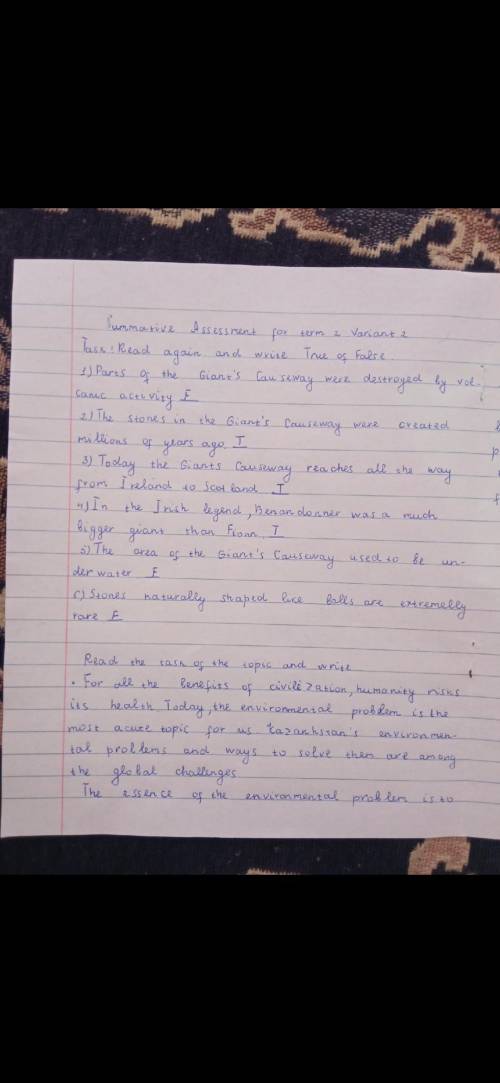 Summative Assessment for term 2 Variant 2
Task: Read again and write True of False.
1) Parts of the Giant's Causeway were destroyed by vol-
canic activity F
2) The stones in the Giant's Causeway were created
millions of years ago. T
3) Today the Giants Causeway reaches all the way
from Ireland to Scotland T
4) In the Irish legend, Benandonner was a much
bigger giant than Fionn. T
5) The area of the Giant's Causeway used to be un-
der water F
6) Stones naturally shaped like balls are extremelly
rare F
Read the task of the topic and write
. For all the benefits of civilization, humanity risks
its health Today, the environmental problem is the
most acute topic for us Kazakhstan's environmen-
tal problems and ways to solve them are among
the global challenges
The essence of the environmental problem is to